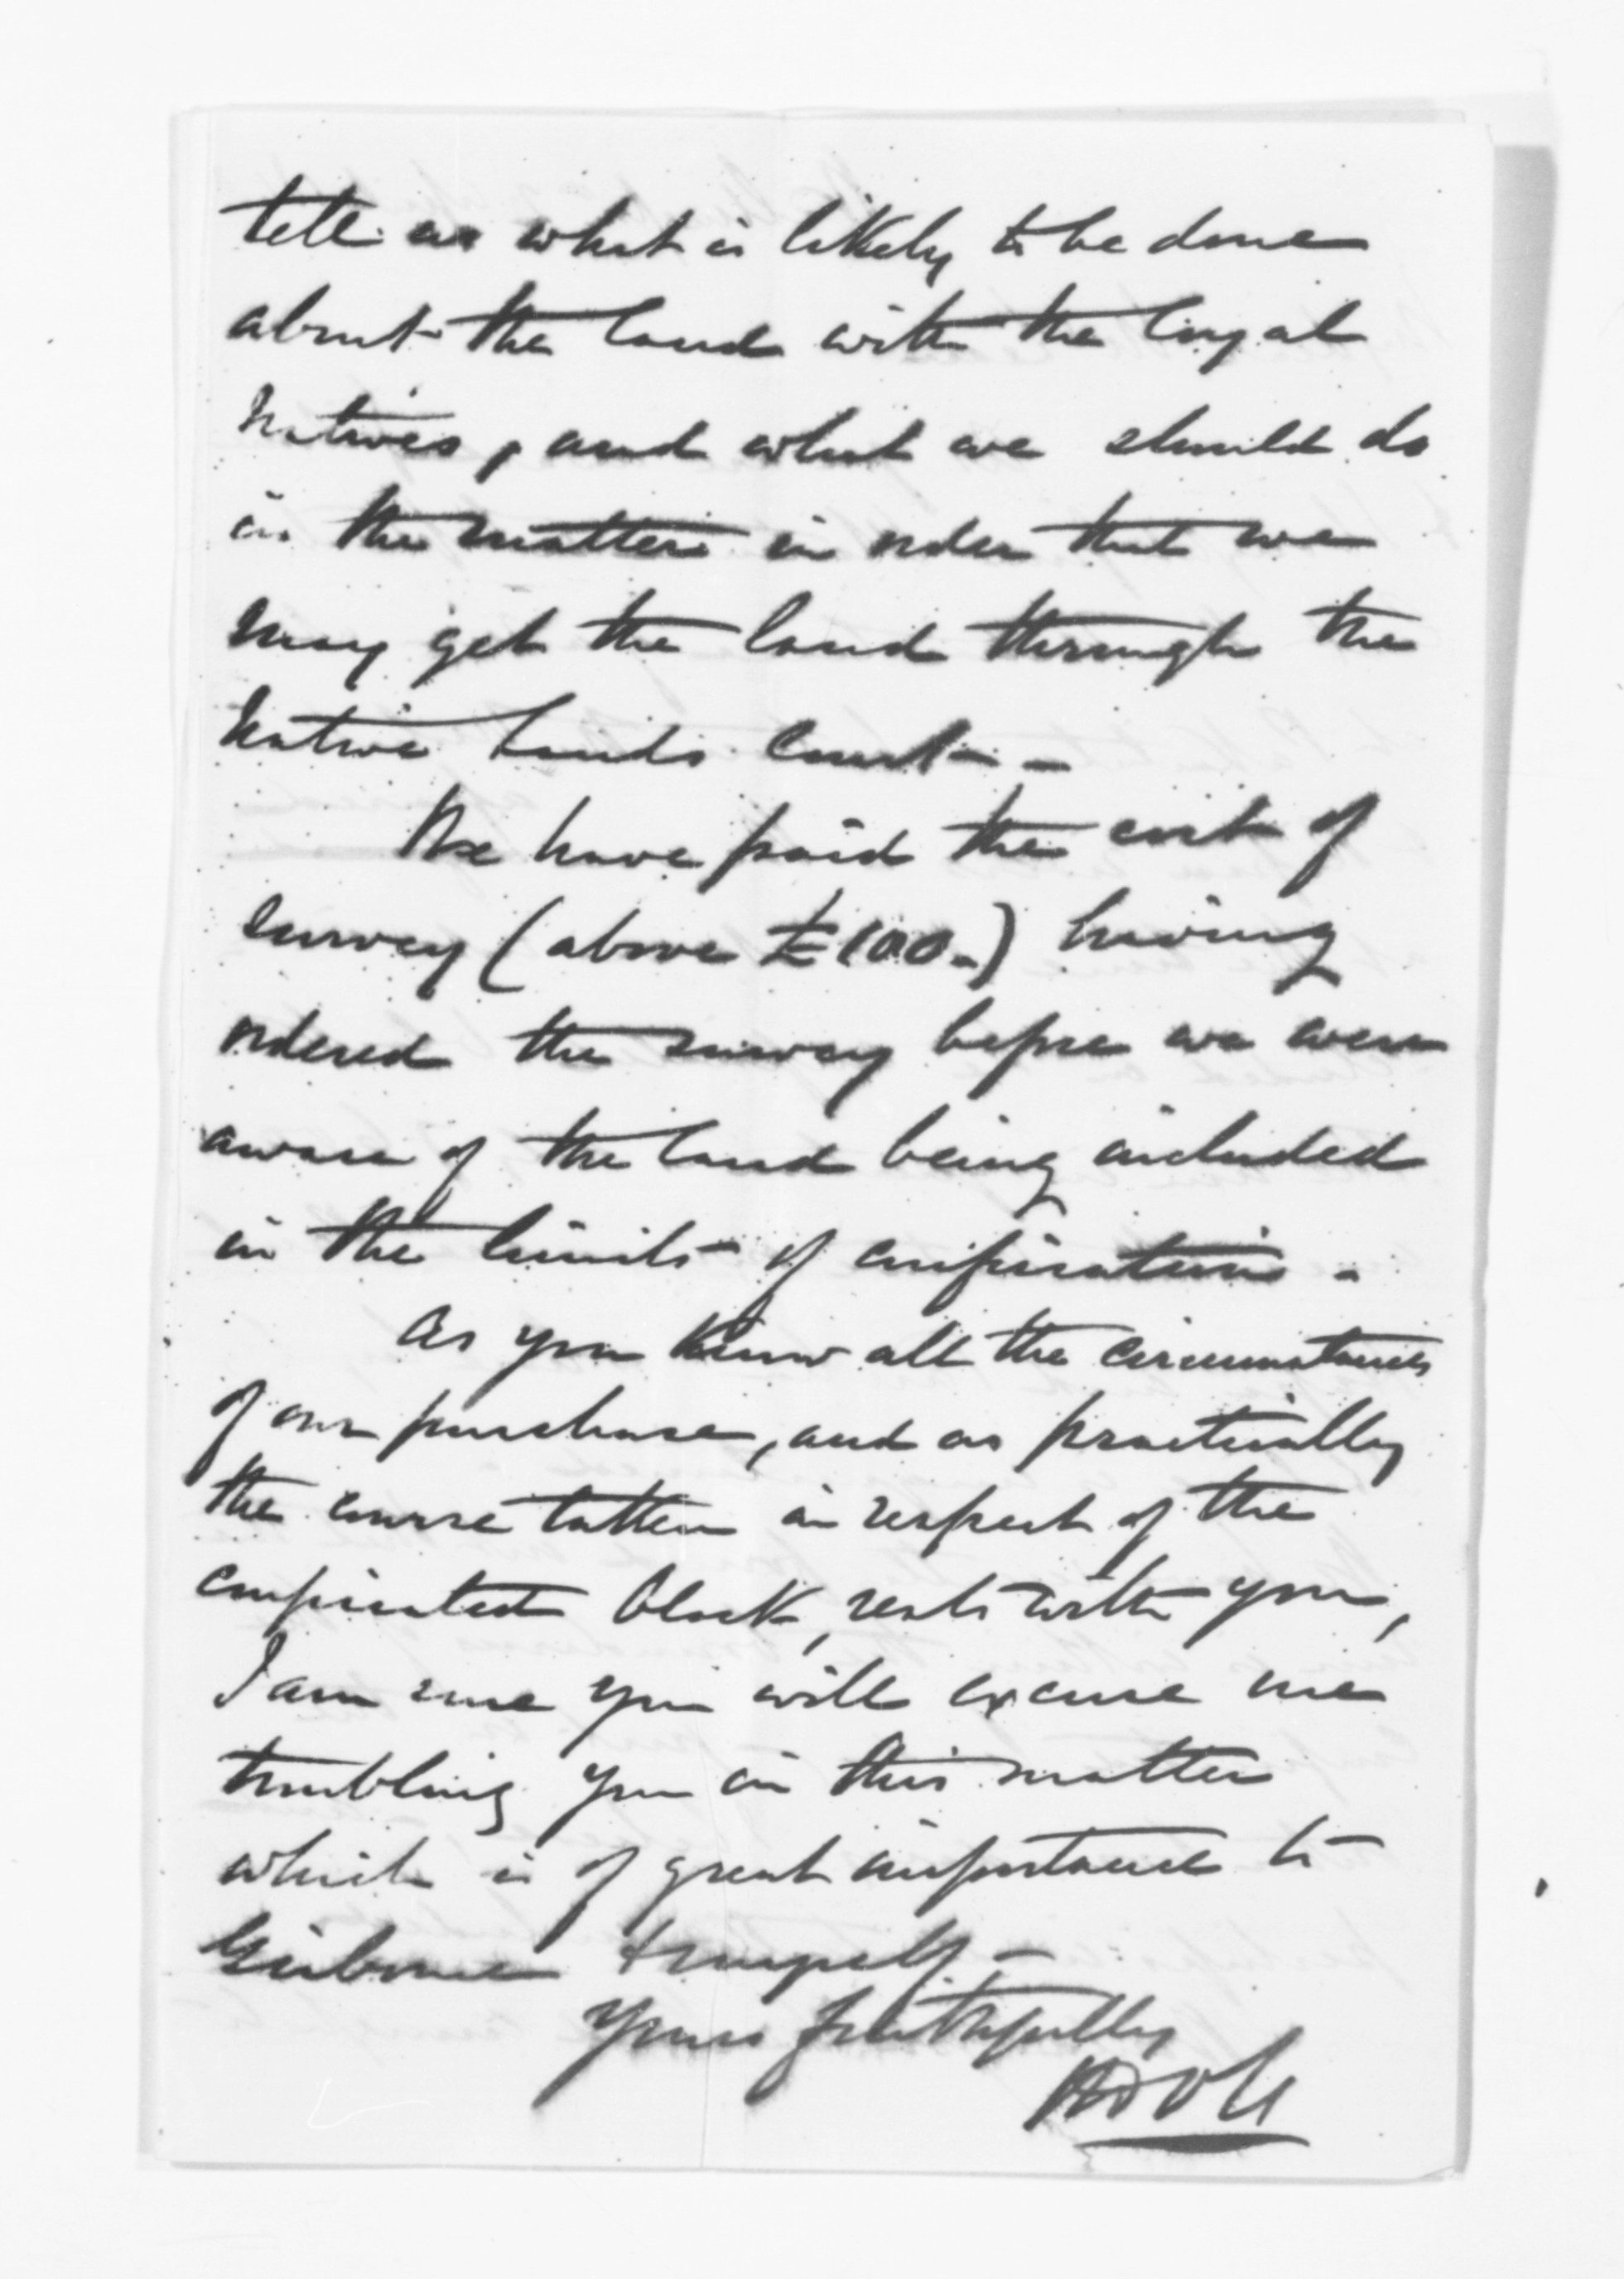 tell us what is likely to be done
about the land with the loyal
natives, and what we should do
in the matter in order that we
may get the land through the
Native Lands Court -
We have paid the cost of
survey (above £100.) having
ordered the survey before we were
aware of the land being included
in the limits of confiscation.
As you know all the circumstances
of our purchase, and as practically
the course taken in respect of the
confiscated block, rests with you,
I am sure you will excuse me
troubling you in this matter
which is of great importance to
Gisborne & myself -
Yours faithfully